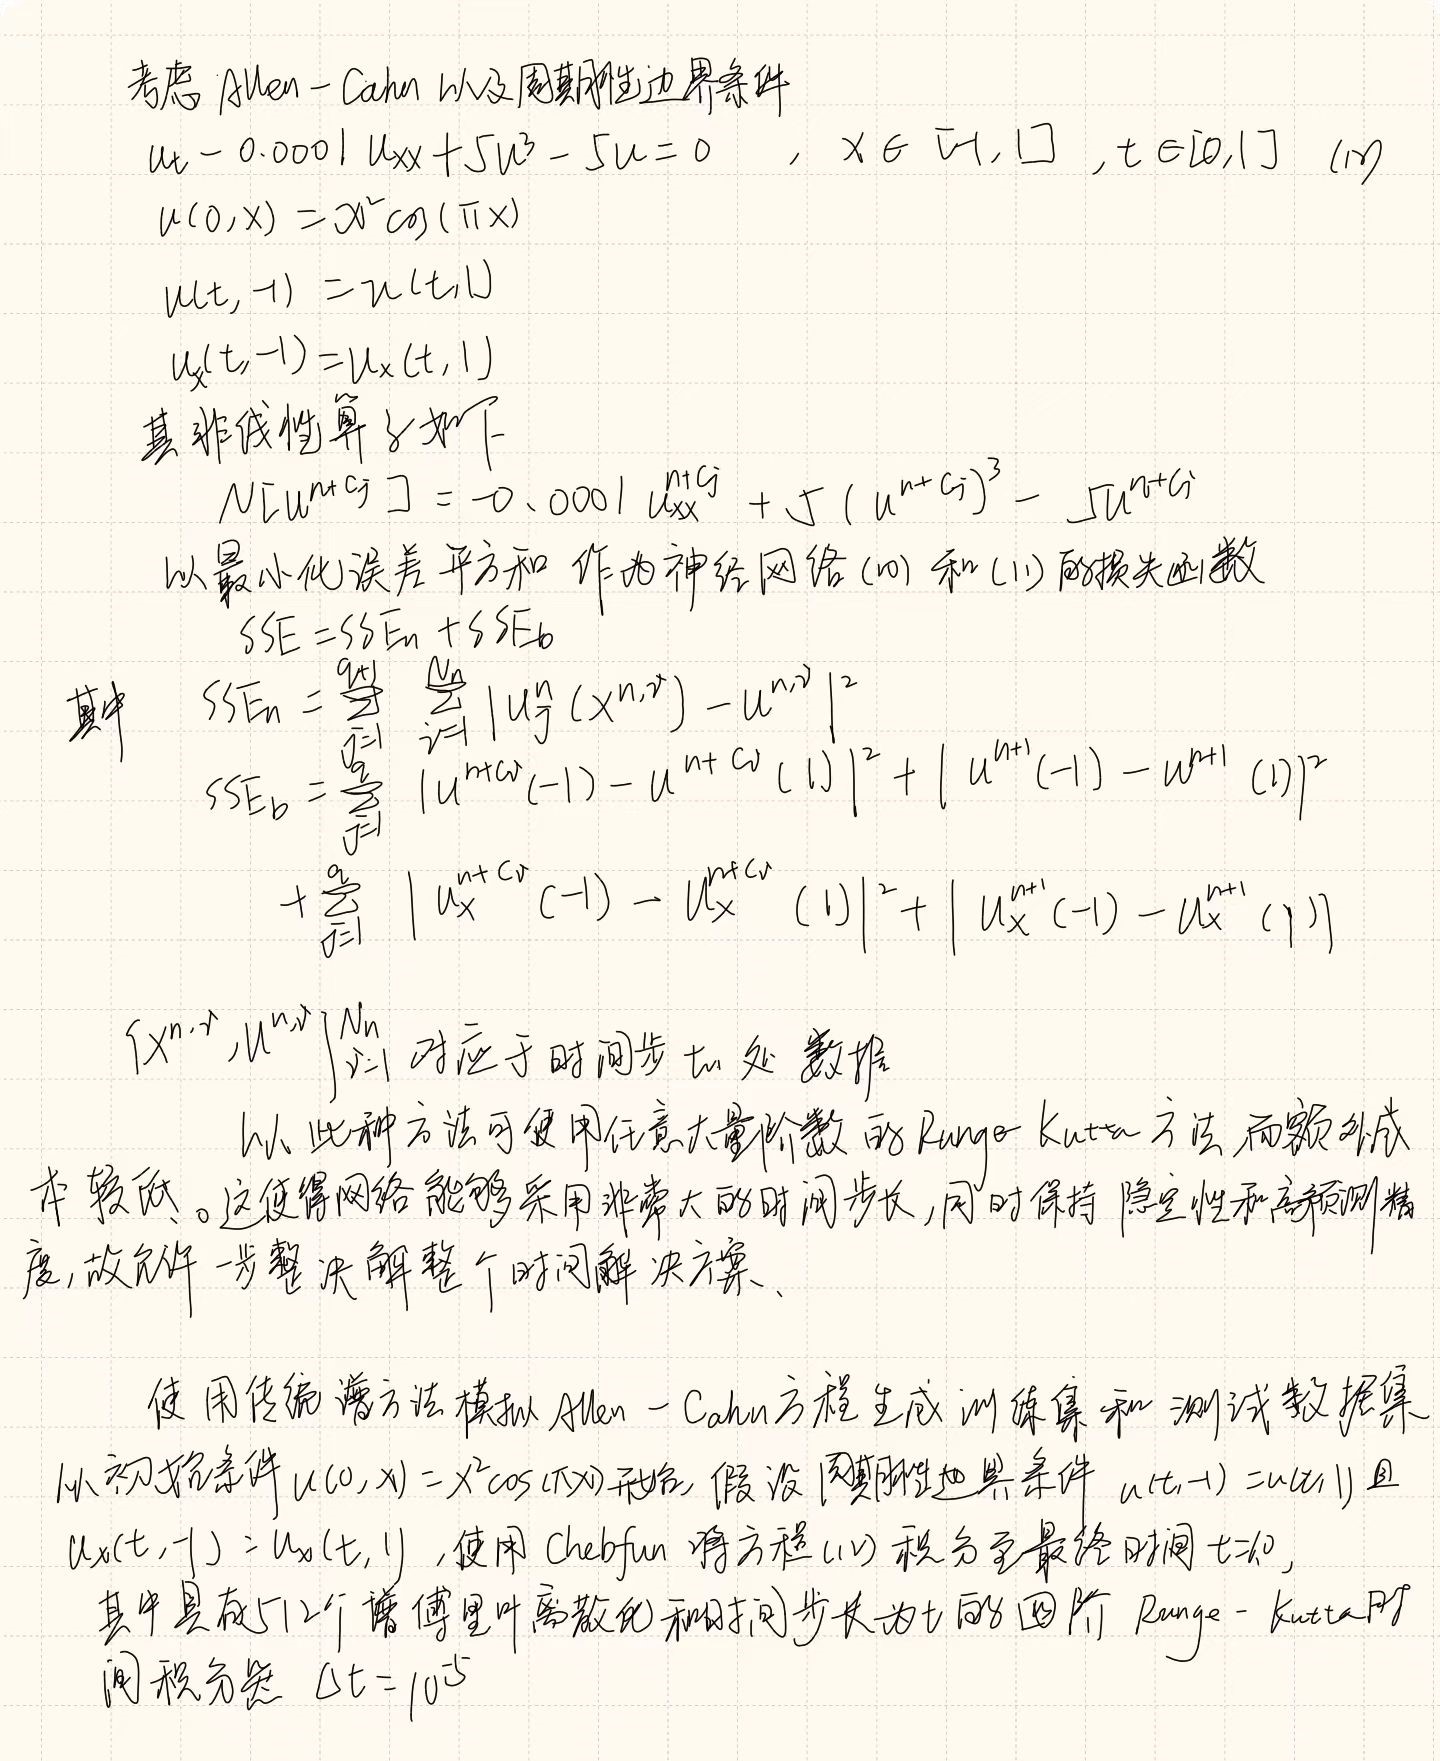 考虑 Allen-Cahn 以及周期性边界条件
u_t - 0.0001 u_xx + 5u^3 - 5u = 0 , x ∈ [-1, 1] , t ∈ [0, 1] (12)
u(0, x) = x^2 cos(πx)
u(t, -1) = u(t, 1)
u_x(t, -1) = u_x(t, 1)
其非线性算子如下
N[u^{n+c_j}] = -0.0001 u_xx^{n+c_j} + 5(u^{n+c_j})^3 - 5u^{n+c_j}
以最小化误差平方和 作为神经网络(10) 和(11) 的损失函数
SSE = SSE_n + SSE_b
其中 SSE_n = Σ_{j=1}^{q+1} Σ_{i=1}^{N_n} |u_j^n (x^{n,i}) - u^{n,i}|^2
SSE_b = Σ_{j=1}^{q} |u^{n+c_i}(-1) - u^{n+c_i}(1)|^2 + |u^{n+1}(-1) - u^{n+1}(1)|^2
+ Σ_{j=1}^{q} |u_x^{n+c_i}(-1) - u_x^{n+c_i}(1)|^2 + |u_x^{n+1}(-1) - u_x^{n+1}(1)|
{x^{n,i}, u^{n,i}}_{i=1}^{N_n} 对应于时间步 t_n 处 数据
以此种方法可使用任意大量阶数的 Runge Kutta 方法 而额外成
本较低。这使得网络能够采用非常大的时间步长,同时保持 隐定性和高预测精
度,故允许一步整决解整个时间解决方案、
使用传统谱方法模拟 Allen-Cahn 方程生成训练集和测试数据集
以初始条件 u(0, x) = x^2 cos(πx) 开始, 假设周期性边界条件 u(t, -1) = u(t, 1) 且
u_x(t, -1) = u_x(t, 1) , 使用 Chebfun 将方程(12) 积分至最终时间 t=1.0,
其中具有512个谱傅里叶离散化和时间步长为t的四阶 Runge-Kutta时
间积分器 Δt = 10^{-5}